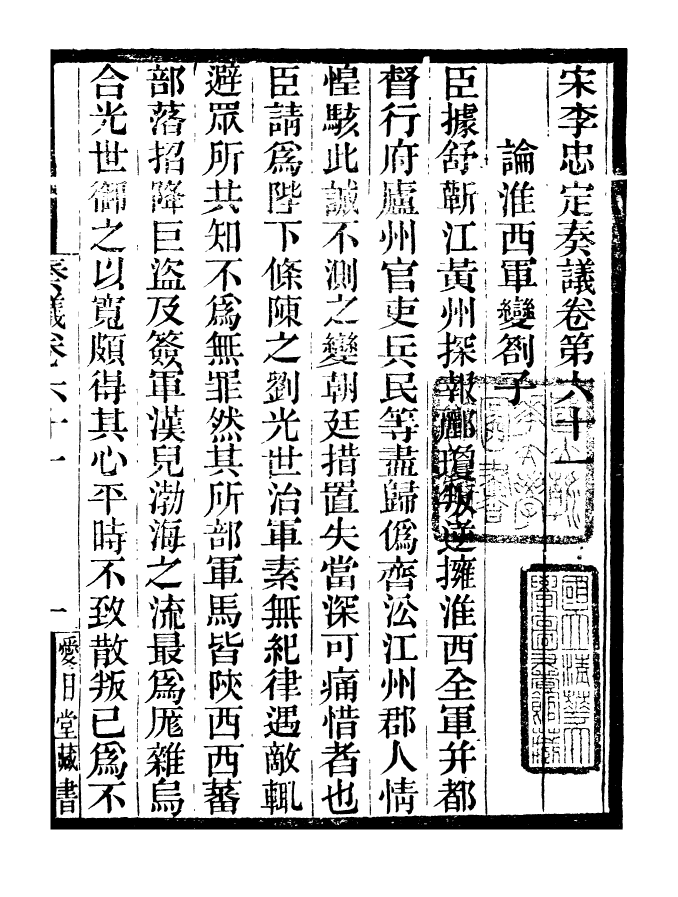 宋李忠定奏議卷第六十一
論淮西軍變劄子
臣據舒蘄江黃州探報酈瓊叛逆擁淮西全軍幷都
督行府廬州官吏兵民等盡歸僞齊沿江州郡人情
惶駭此誠不測之變朝廷措置失當深可痛惜者也
臣請爲陛下條陳之劉光世治軍素無紀律遇敵輒
避眾所共知不爲無罪然其所部軍馬皆陝西西蕃
部落招降巨盜及簽軍漢兒渤海之流最爲厖雜烏
合光世御之以寬頗得其心平時不致散叛已爲不
奏議卷六十一
一
愛日堂藏書